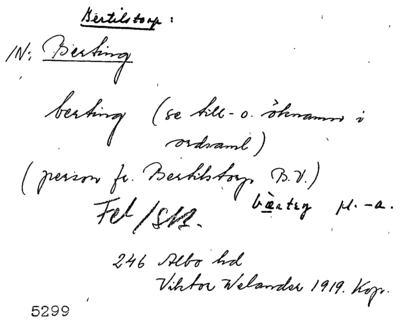 Bertilstorp:
IN: Berting
berting (se till- o. öknamn i
ordsaml)
(person fr. Bertilstorp B.V.)
bæ̱rteŋ pl. -a.
Fel/SB.
246 Albo hd
Viktor Welander 1919. Kop.
5299